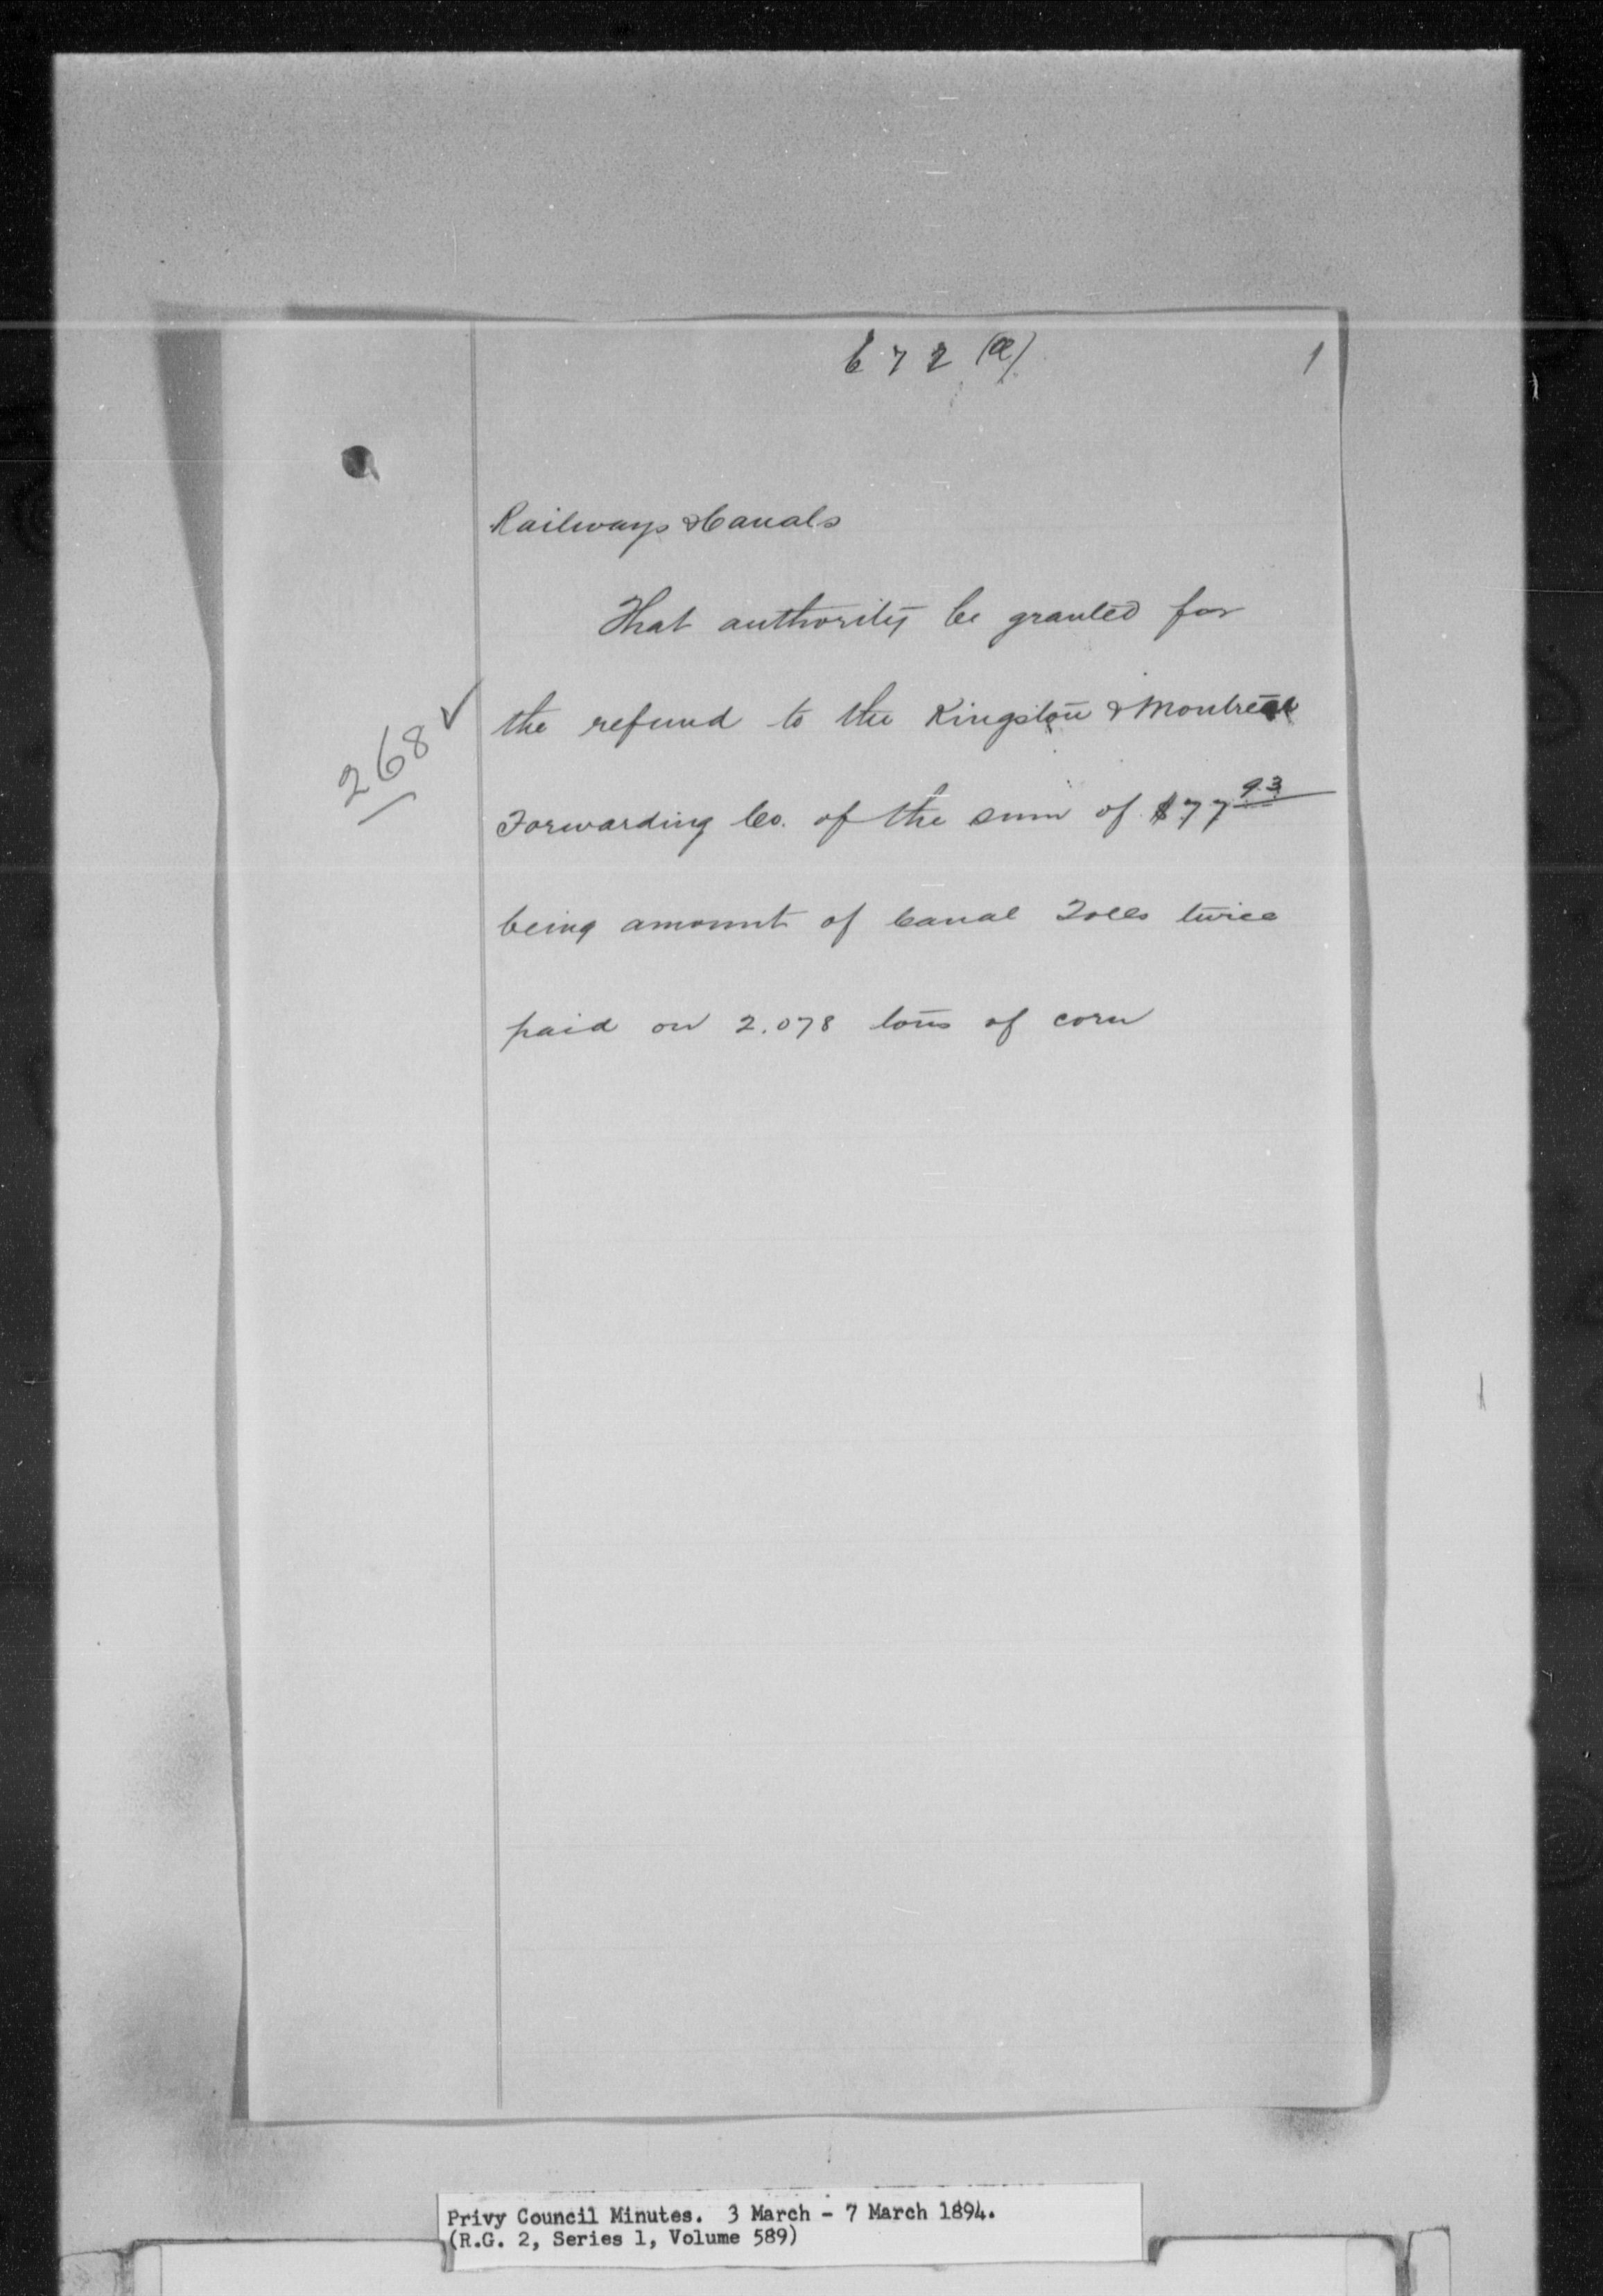 672 (a)
1
Railways & Canals
That authority be granted for
the refund to the Kingston & Montreal
268 ✓
Forwarding Co. of the sum of $77 93
being amount of Canal Tolls twice
paid on 2.078 tons of corn
Privy Council Minutes. 3 March - 7 March 1894.
(R.G. 2, Series 1, Volume 589)